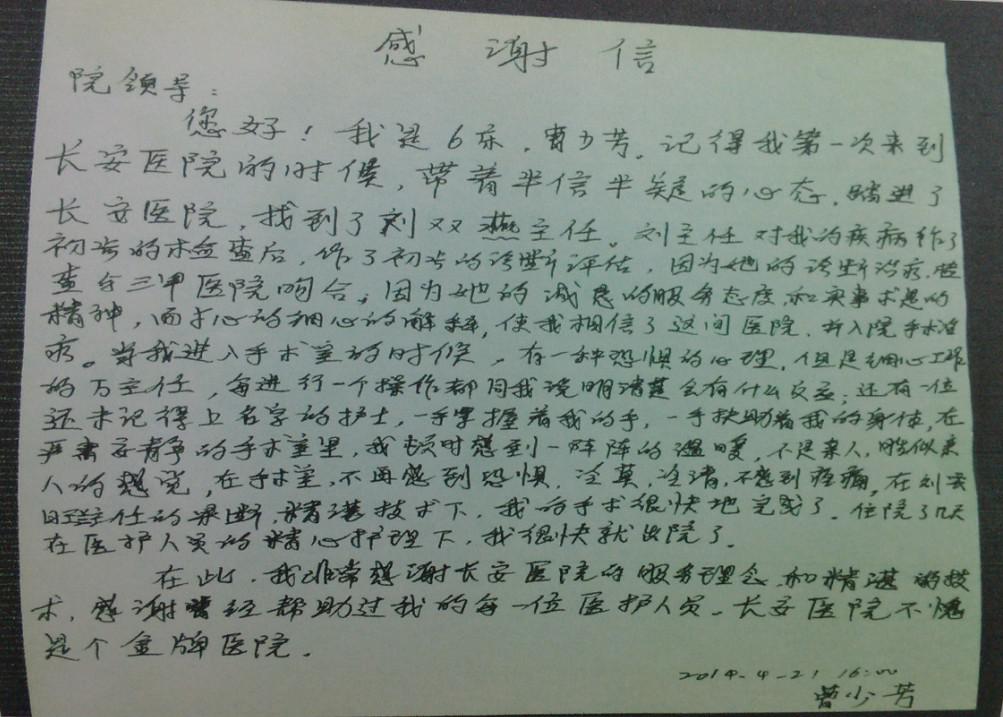 感谢信
院领导：
您好！我是6床，曹少芳。记得我第一次来到
长安医院的时候，带着半信半疑的心态，踏进了
长安医院，找到了刘双燕主任。刘主任对我的疾病作了
初步的检查后，作了初步的诊断评估，因为她的诊断治疗，
查与三甲医院吻合，因为她的诚恳的服务态度和实事求是的
精神，耐心的细心的解释，使我相信了这间医院，并入院手术治
疗。当我进入手术室的时候，有一种恐惧的心理，但是细心工作
的万主任，每进行一个操作都同我说明清楚会有什么反应；还有一位
还未记得上名字的护士，一手掌握着我的手，一手扶助着我的身体，在
严肃安静的手术室里，我顿时感到一阵阵的温暖，不是亲人，胜似亲
人的感觉，在手术室，不再感到恐惧，冷莫，冷清，不感到疼痛，在刘
主任的果断，精湛技术下，我的手术很快地完成了。住院了几天
在医护人员的精心护理下，我很快就出院了。
在此，我非常感谢长安医院的服务理念和精湛的技
术，感谢曾经帮助过我的每一位医护人员。长安医院不愧
是个金牌医院。
2014-4-21 16:00
曹少芳